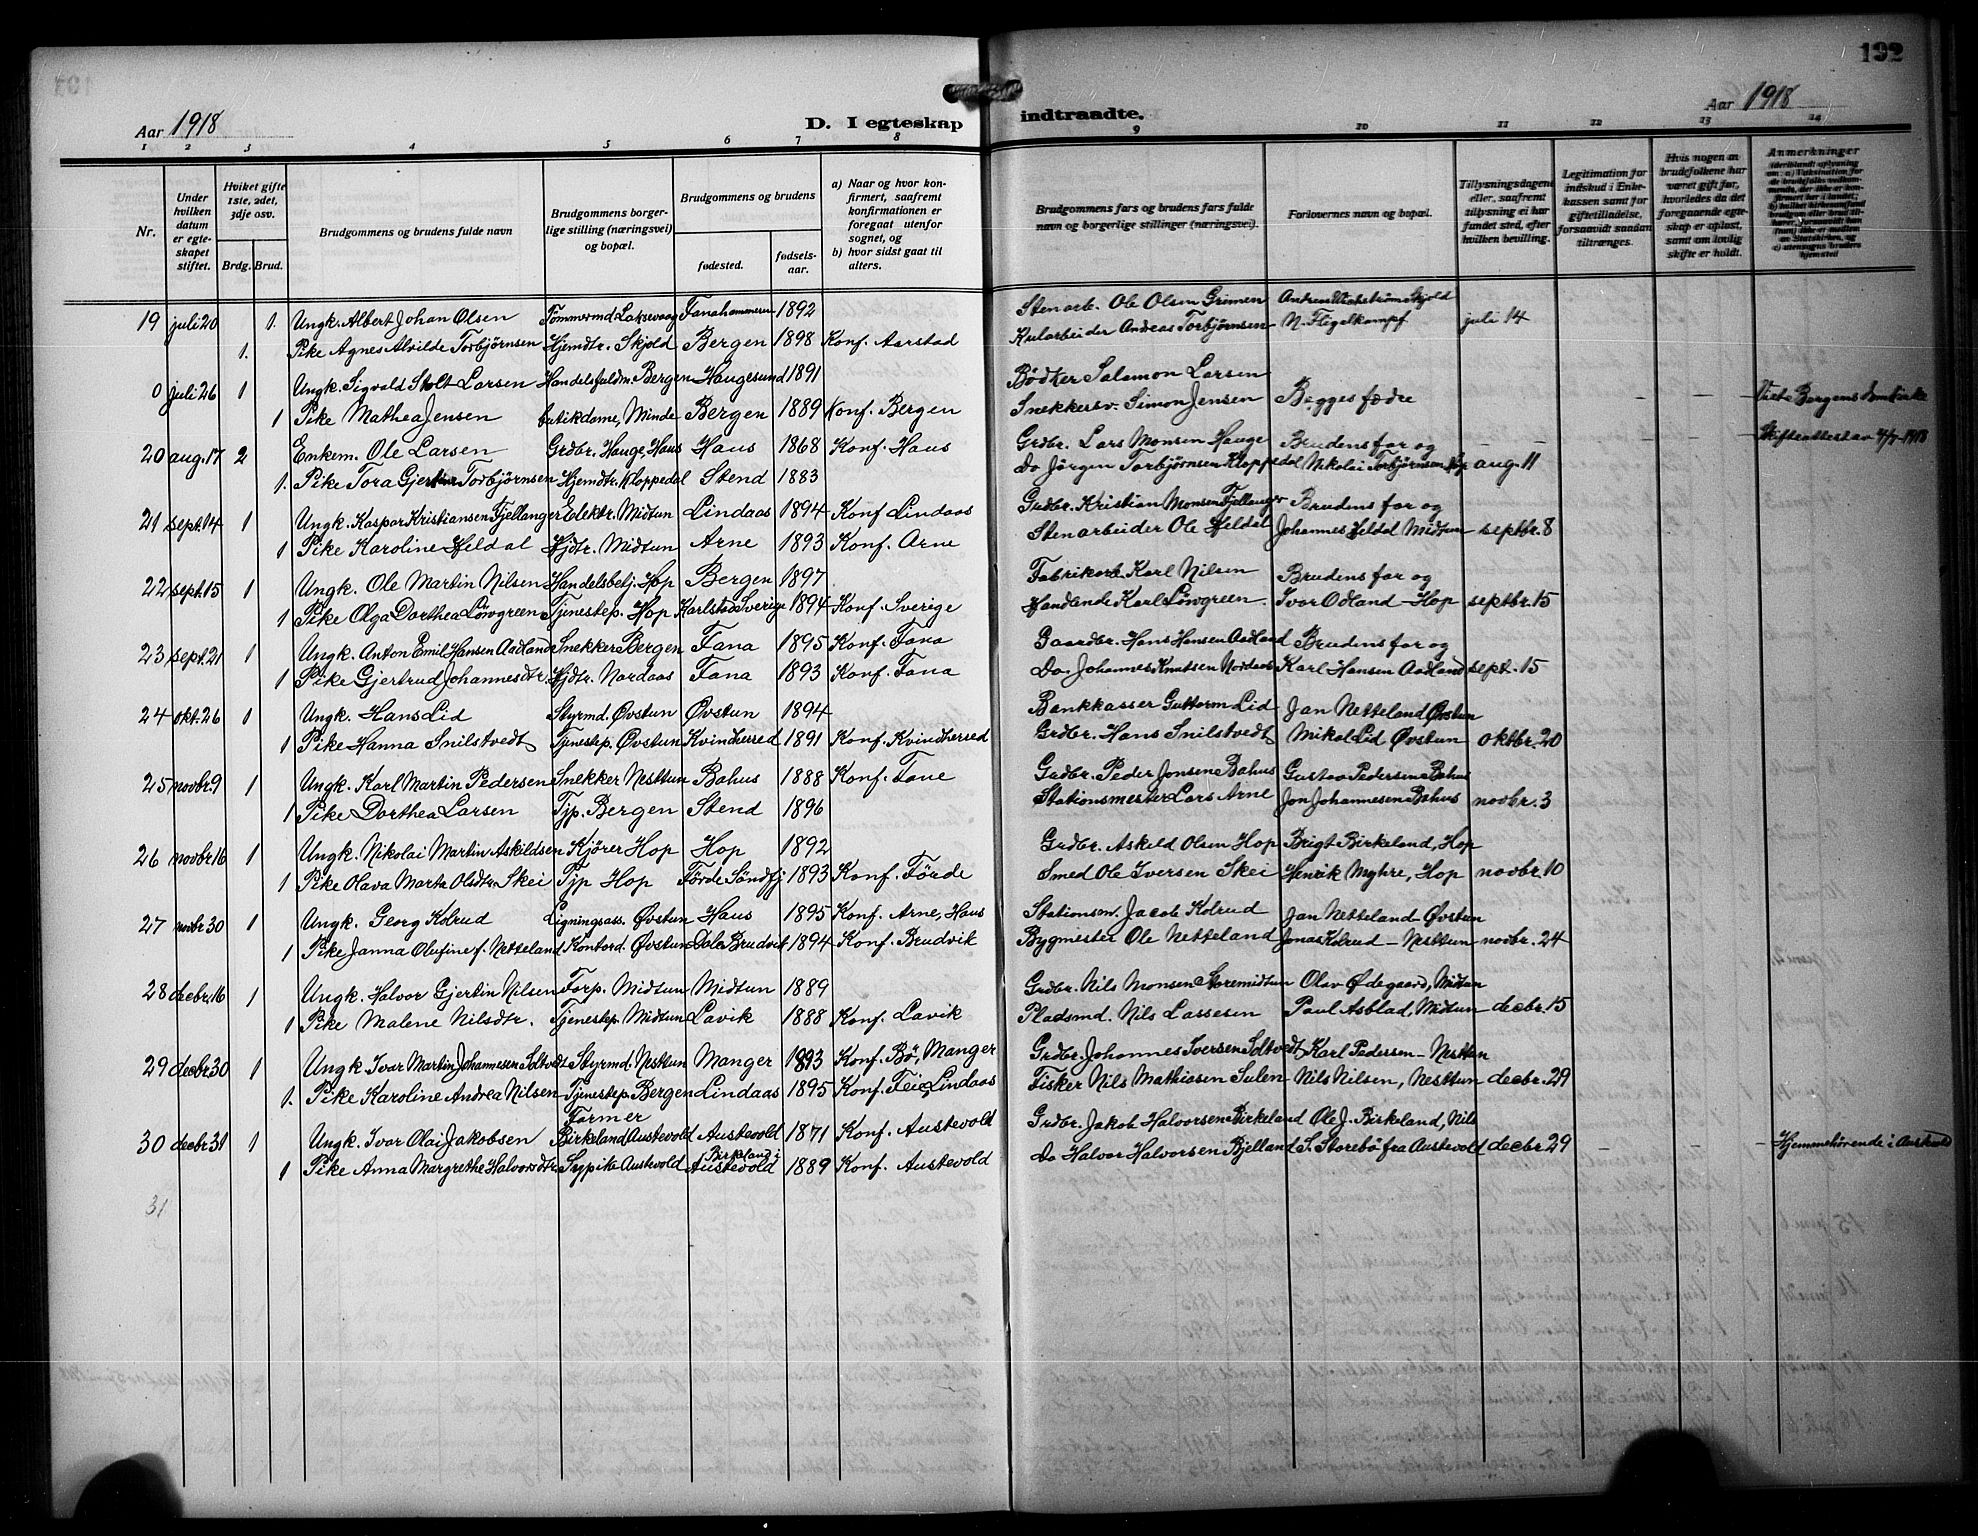 192
Aar 1918
D. I egteskap indtraadte.
Aar 1918
1 2 3 4 5 6 7 8 9 10 11 12 13 14
Nr.
Under hvilken datum er egteskapet stiftet.
Hviket gifte 1ste, 2det, 3dje osv.
Brdg. Brud.
Brudgommens og brudens fulde navn
Brudgommens borgerlige stilling (næringsvei) og bopæl.
Brudgommens og brudens
fødested. fødselsaar.
a) Naar og hvor konfirmert, saafremt konfirmationen er foregaat utenfor sognet, og
b) hvor sidst gaat til alters.
Brudgommens fars og brudens fars fulde navn og borgerlige stillinger (næringsvei).
Forlovernes navn og bopæl.
Tillysningsdagene eller, saafremt tillysning ei har fundet sted, efter hvilken bevilling.
Legitimation for indskud i Enkekassen samt for giftetilladelse, forsaavidt saadan tiltrænges.
Hvis nogen av brudefolkene har været gift før, hvorledes da det foregaaende egteskap er opløst, samt om lovlig skifte er holdt.
Anmerkninger
19 juli 20 1. Ungk. Albert Johan Olsen Tømmermd. Laksevaag Fanahammeren 1892 Stenarb. Ole Olsen Grimen
1. Pike Agnes Alvilde Torbjørnsen Hjemdtr. Skjold Bergen 1898 Konf. Aarstad Kularbeider Andreas Torbjørnsen N. Fligelkampf juli 14
0 juli 26 1 Ungk. Sigvald Stolt Larsen Handelsfuldm. Bergen Haugesund 1891 Bødker Salamon Larsen
1 Pike Mathea Jensen butikdame, Minde Bergen 1889 Konf. Bergen Snekkersv. Simon Jensen Begges fædre - - Viet i Bergens Domkirke
20 aug. 17 2 Enkem. Ole Larsen Grdbr. Hauge, Haus Haus 1868 Konf. Haus Grdbr. Lars Monsen Hauge Brudens far og - - - Skifteattest av 4/7-1918
1. Pike Tora Torbjørnsen Hjemdtr. Kloppedal Stend 1883 Do Jørgen Torbjørnsen Kloppedal Nikolai Torbjørnsen Hop aug. 11
21 sept. 14 1 Ungk. Kaspar Kristiansen Fjellanger Elektr. Midtun Lindaas 1894 Konf Lindaas Grdbr. Kristian Monsen Fjellanger Brudens far og
1 Pike Karoline Heldal Hjdtr. Midtun Arne 1893 Konf. Arne Stenarbeider Ole Heldal Johannes Heldal Midtun septbr. 8
22 sept. 15 1 Ungk. Ole Martin Nilsen Handelsbetj. Hop Bergen 1897 Fabrikarb. Karl Nilsen Brudens far og
1 Pike Olga Dorthea Löwgreen Tjenestep. Hop Karlstad Sverige 1894 Konf. Sverige Handlende Karl Löwgreen. Ivar Odland - Hop septbr. 15
23 sept. 21 1 Ungk. Anton Emil Hansen Aadland Snekker Bergen Fana 1895 Konf. Fana Gaardbr. Hans Hansen Aadland Brudens far og
1 Pike Gjertrud Johannesdtr. Hjdtr. Nordaas Fana 1893 Konf. Fana Do Johannes Knutsen Nordaas Karl Hansen Aadland sept. 15
24 okt. 26 1 Ungk. Hans Lid Styrmd. Øvstun Øvstun 1894 Bankkasser Guttorm Lid Jan Netteland Øvstun
1 Pike Hanna Snilstvedt Tjenestep. Øvstun Kvindherred 1891 Konf. Kvindherred Grdbr. Hans Snilstvedt Mikal Lid Øvstun oktbr. 20
25 novbr. 9 1 Ungk. Karl Martin Pedersen Snekker Nesttun Bahus 1888 Konf. Fane Grdbr. Peder Jonsen Bahus Gustav Pedersen Bahus
1 Pike Dorthea Larsen Tjp. Bergen Stend 1896 Stationsmester Lars Arne Jon Johannesen Bahus novbr. 3
26 novbr 16 1 Ungk. Nikolai Martin Askildsen Kjører Hop Hop 1892 Grdbr. Askild Olsen Hop Brigt Birkeland, Hop
1 Pike Olava Marta Olsdtr. Skei Tjp Hop Førde Söndfj 1893 Konf. Førde Smed Ole Iversen Skei Henrik Myhre, Hop novbr. 10
27 novbr 30 1 Ungk. Georg Kolrud Ligningsass. Øvstun Haus 1895 Konf. Arne, Haus Stationsm. Jacob Kolrud Jan Netteland Øvstun
1 Pike Janna Olufine f. Netteland Kontord. Øvstun Dale Brudvik 1894 Konf. Brudvik Bygmester Ole Netteland Jonas Kolrud - Nesttun novbr. 24
28 decbr. 16 1 Ungk. Halvor Gjertin Nilsen Forp. Midtun Midtun 1889 Grdbr. Nils Monsen Storemidtun Olav Ødegaard, Midtun
1 Pike Malene Nilsdtr. Tjenestep. Midtun Lavik 1888 Konf. Lavik Pladsmd. Nils Lassesen Paul Asblad, Midtun decbr. 15
29 decbr 30 1 Ungk. Ivar Martin Johannesen Soltvedt Styrmd. Nesttun Manger 1893 Konf. Bø, Manger Grdbr. Johannes Iversen Soltvedt Karl Pedersen - Nesttun
1. Pike Karoline Andrea Nilsen Tjenestep. Bergen Lindaas 1895 Konf. Feie, Lindaas Fisker Nils Mathiasen Sulen Nils Nilsen, Nesttun decbr. 29
Former
30 decbr 31 1 Ungk. Ivar Olai Jakobsen Birkeland Austevold Austevold 1871 Konf. Austevold Grdbr. Jakob Halvorsen Birkeland Ole J. Birkeland, Nils
Birkeland i
1 Pike Anna Margrethe Halvorsdtr Sypike Austevold Austevold 1889 Konf. Austevold Do Halvor Halvorsen Bjelland S. Storebø fra Austevold decbr. 29 - - - Hjemmehørende i Austevold
31